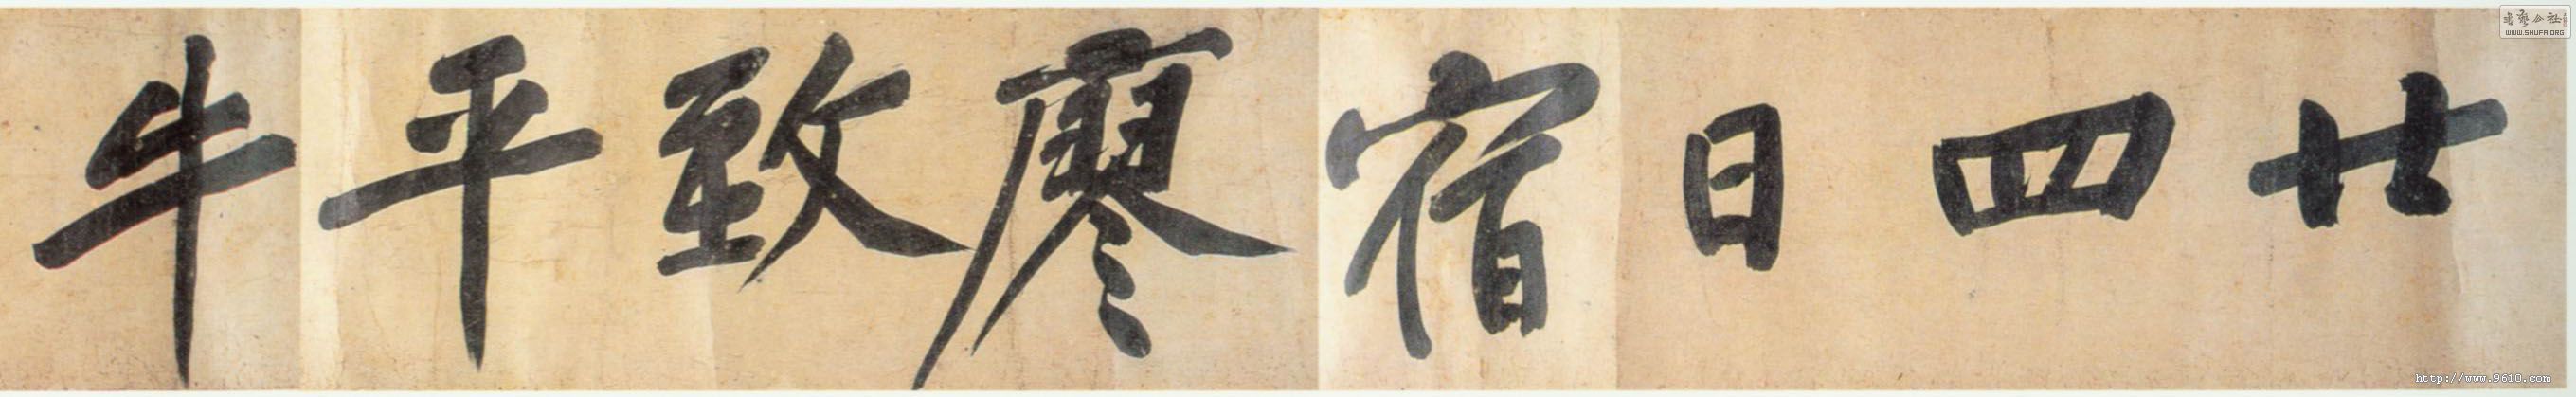 廿四日宿廖致平牛
書藝公社
WWW.SHUFA.ORG
http://www.9610.com